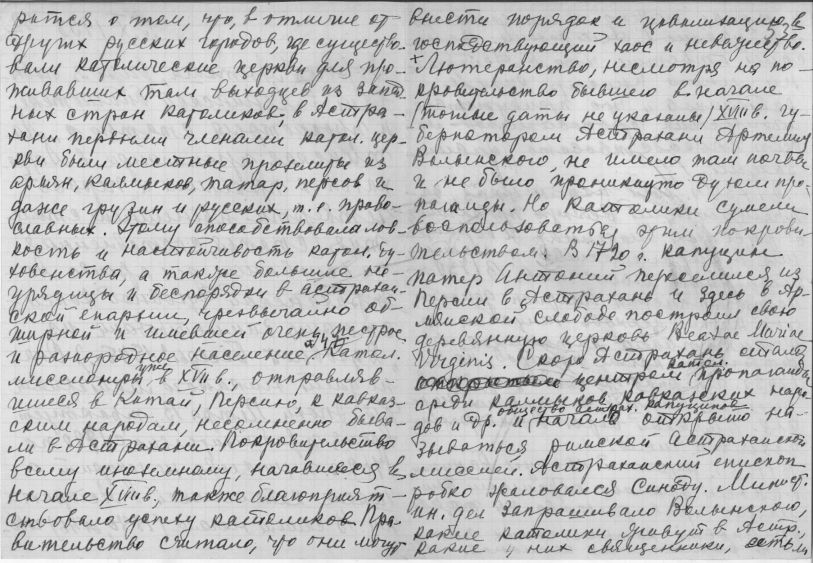 рится о том, что, в отличие от
других русских городов, где существо-
вали католические церкви для про-
живавших там выходцев из запад-
ных стран католиков, в Астра-
хани первыми членами катол. цер-
кви были местные прозелиты из
армян, калмыков, татар, персов и
даже грузин и русских, т.е. право-
славных. Этому способствовала лов-
кость и настойчивость катол. ду-
ховенства, а также большие не-
урядицы и беспорядки в астрахан-
ской епархии, чрезвычайно об-
ширной и имевшей очень пестрое
и разнородное население. Катол.
миссионеры, уже в XVII в., отправляв-
шиеся в Китай, Персию, к кавказ-
ским народам, несомненно быва-
ли в Астрахани. Покровительство
всему иноземному, начавшееся в
начале XVIII в., также благоприят-
ствовало успеху католиков. Пра-
вительство считало, что они могут
внести порядок и цивилизацию в
господствующий хаос и невежество.
+ Лютеранство, несмотря на по-
кровительство бывшего в начале
/точные даты не указаны/ XVIII в. гу-
бернатором Астрахани Артемия
Волынского, не имело там почвы
и не было проникнуто духом про-
паганды. Но католики сумели
воспользоваться этим покрови-
тельством. В 1720 г. капуцин
патер Антоний переселился из
Персии в Астрахань и здесь в Ар-
мянской слободе построил свою
деревянную церковь Beatae Mariae
Virginis. Скоро Астрахань стала
центром катол. пропаганды
среди калмыков, кавказских наро-
дов и др. и общество астрах. капуцинов начало открыто на-
зываться римской Астраханской
миссией. Астраханский епископ
робко жаловался Синоду. Минист.
ин. дел запрашивало Волынского,
какие католики живут в Астр.,
какие у них священники, есть ли